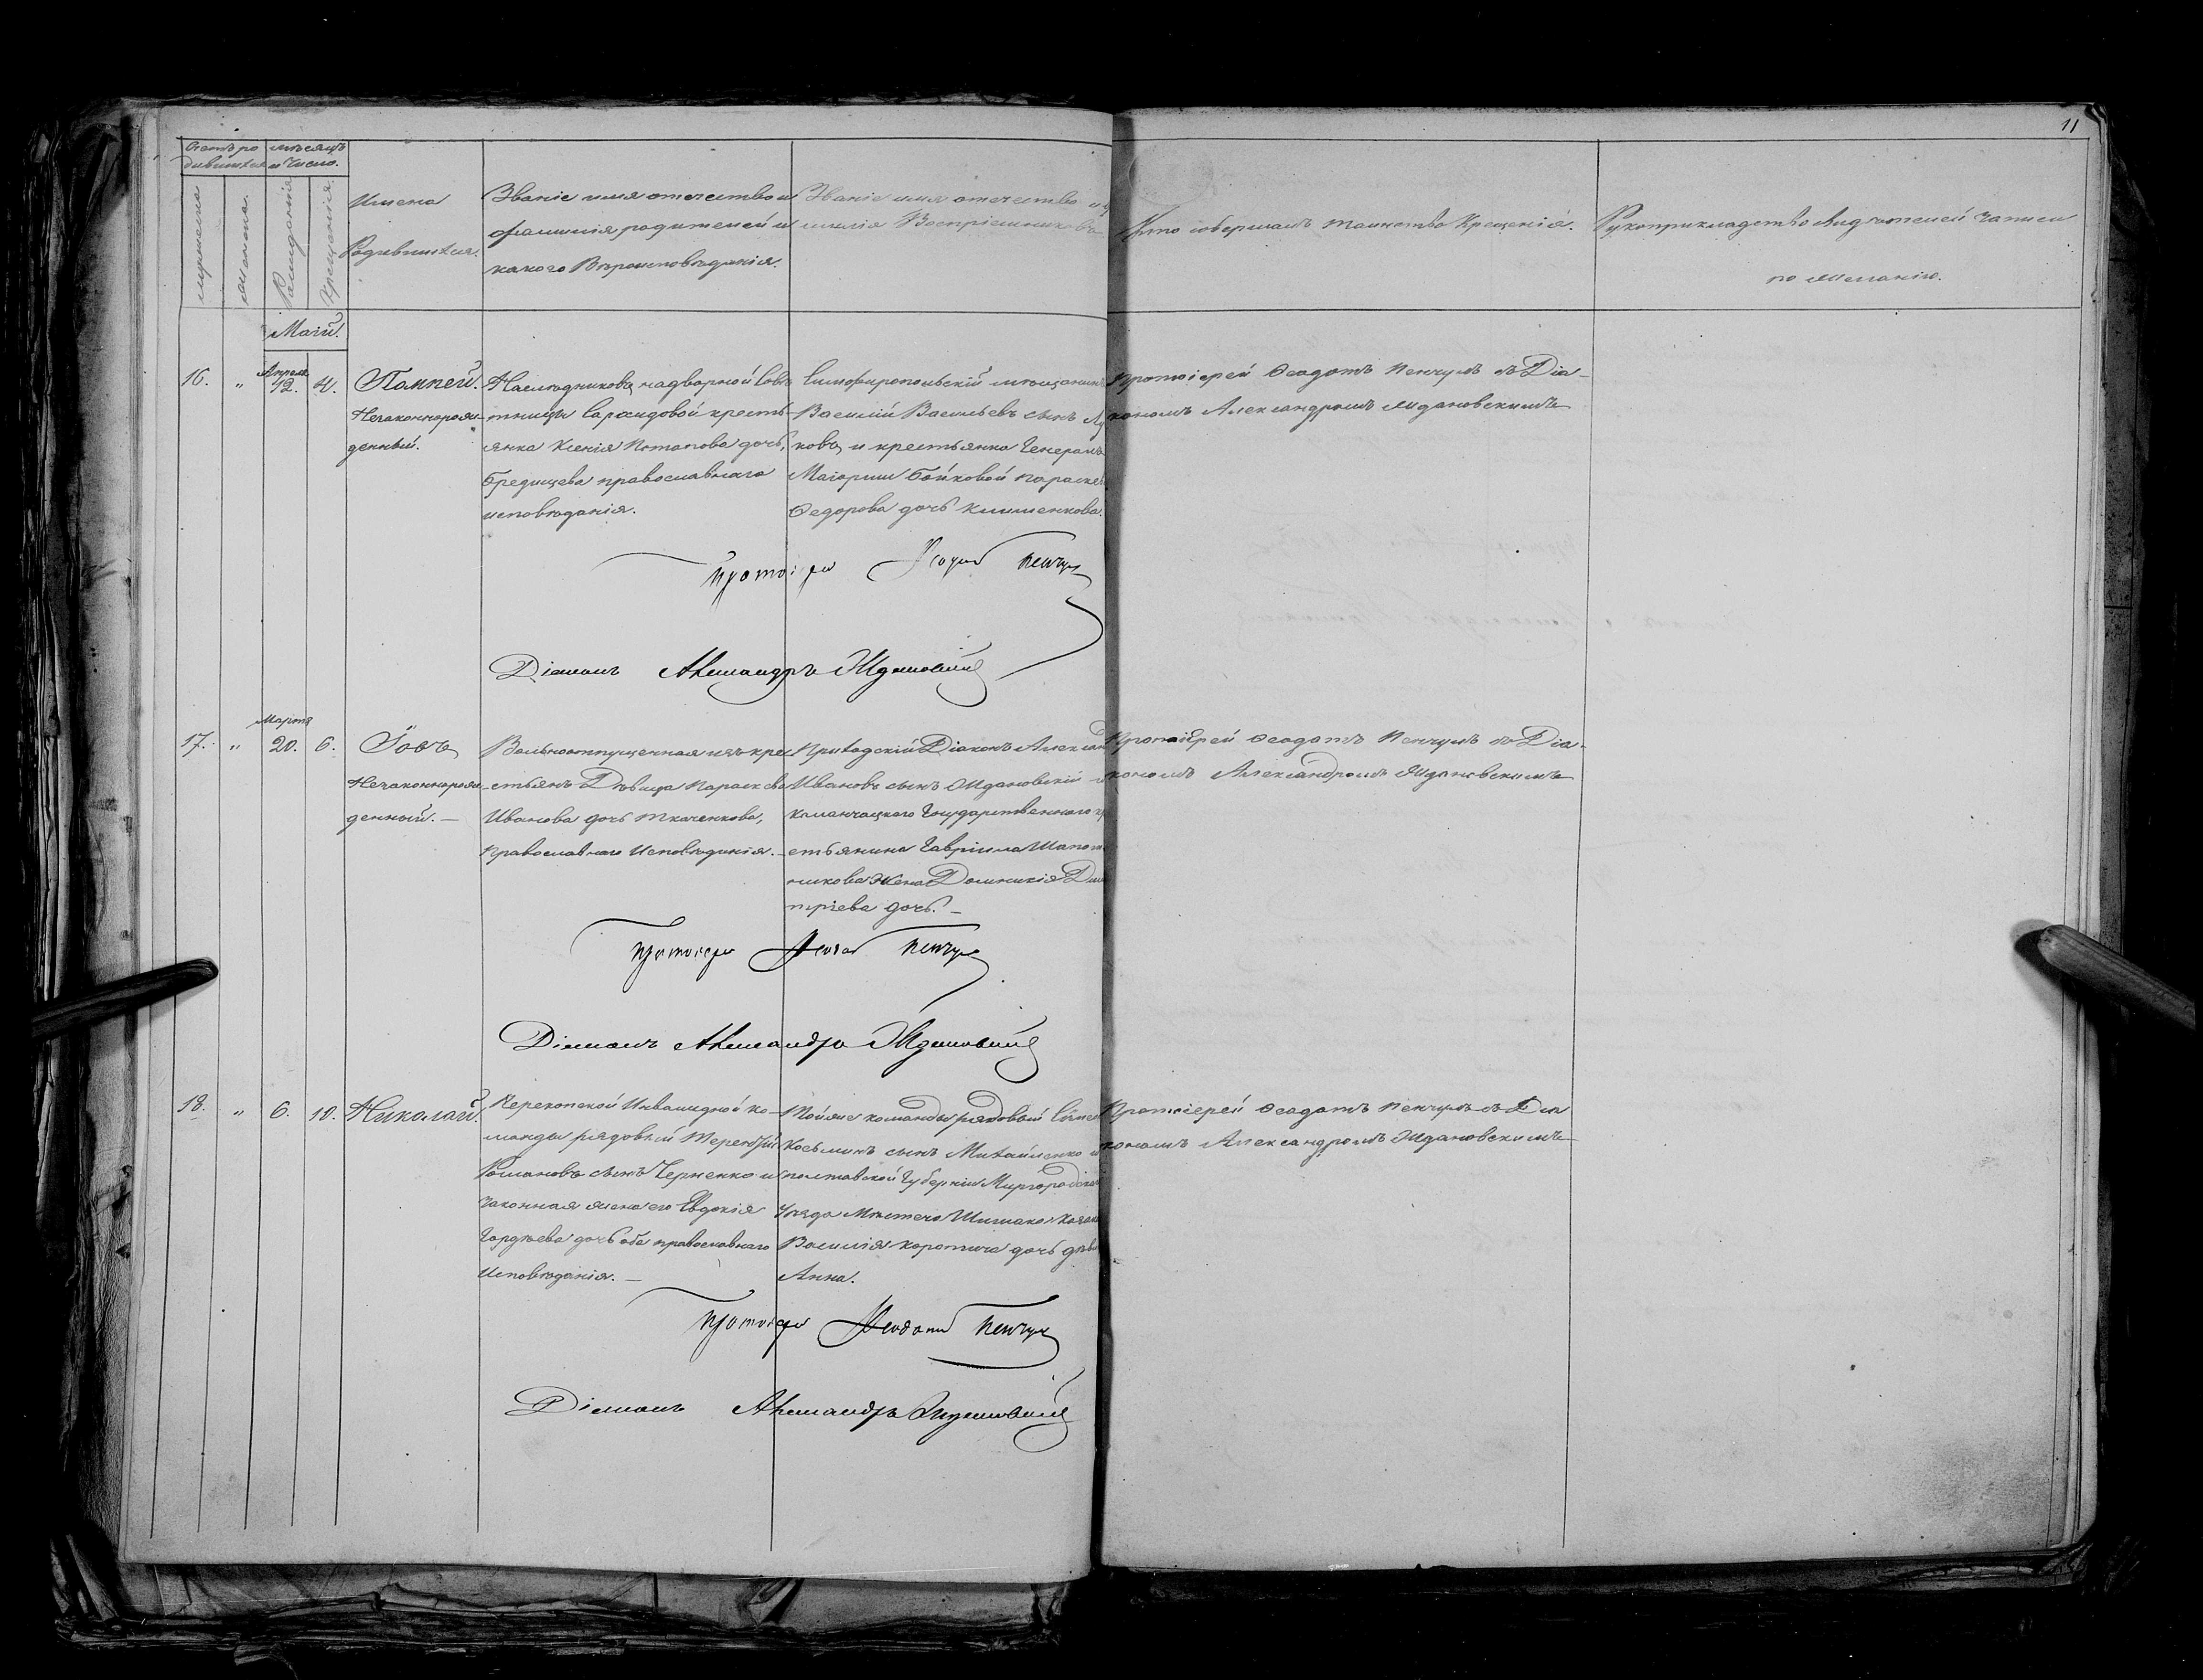 11
Счетъ ро мѣсяцъ
дившихся и Число.
мужеска
женска.
Рожденія
Крещенія.
Имена
Родившихся.
Званіе имя отечество и
фамилія родителей и
какого Вѣроисповѣданія.
Званіе имя отечество и ф
милія Воспріемниковъ
Кто совершалъ таинство Крещенія.
Рукоприкладство свидѣтелей записи
по желанію.
Маій.
16. " Апреля 12. 4. Помпей.
Незаконнорож-
денный.
Наслѣдниковъ надворной Совѣ
тницы Сарандовой кресть-
янка Ксенія Потапова дочь,
Бредищева православнаго
исповѣданія.
Симферопольскій мѣщанинъ
Василій Васильевъ сынъ
ковъ, и крестьянка Генералъ
Маіорши Бойковой Параске
Федорова дочь Клименкова.
Протоіерей Феодотъ Пенчулъ съ Діа-
кономъ Александромъ Ждановскимъ
Протоіерей Феодотъ Пенчул
Діаконъ Александръ Ждановскій
17. " Марта 20. 6. Іовъ
Незаконнорож-
денный. —
Вольноотпущенная изъ кре
стьянъ Дѣвица Параскева
Иванова дочь Ткаченкова,
Православнаго Исповѣданія. —
Приходскій Діаконъ Александ
Ивановъ сынъ Ждановскій и
Каланчацкого Государственного кр
естьянина Гавріила Шапош
никова Жена Домникія Дми
тріева дочь. —
Протоіерей Феодотъ Пенчулъ съ Діа-
кономъ Александромъ Ждановскимъ
Протоіерей Феодот Пенчул
Діаконъ Александръ Ждановскій
18. " 6. 10. Николай.
Перекопской Инвалидной ко-
манды рядовый Терентій
Романовъ сынъ Черненко и
законная жена его Евдокія
Гордѣева дочь оба православнаго
Исповѣданія. —
Тойже команды рядовый
Косьминъ сынъ Михайленко и
полтавской Губерніи Миргородска
Уѣзда Мѣстечо Шишака Казака
Василія Коротича дочь дѣв
Анна.
Протоіерей Феодотъ Пенчулъ съ Діа
кономъ Александромъ Ждановскимъ
Протоіерей Феодотъ Пенчул
Діаконъ Александръ Ждановскій